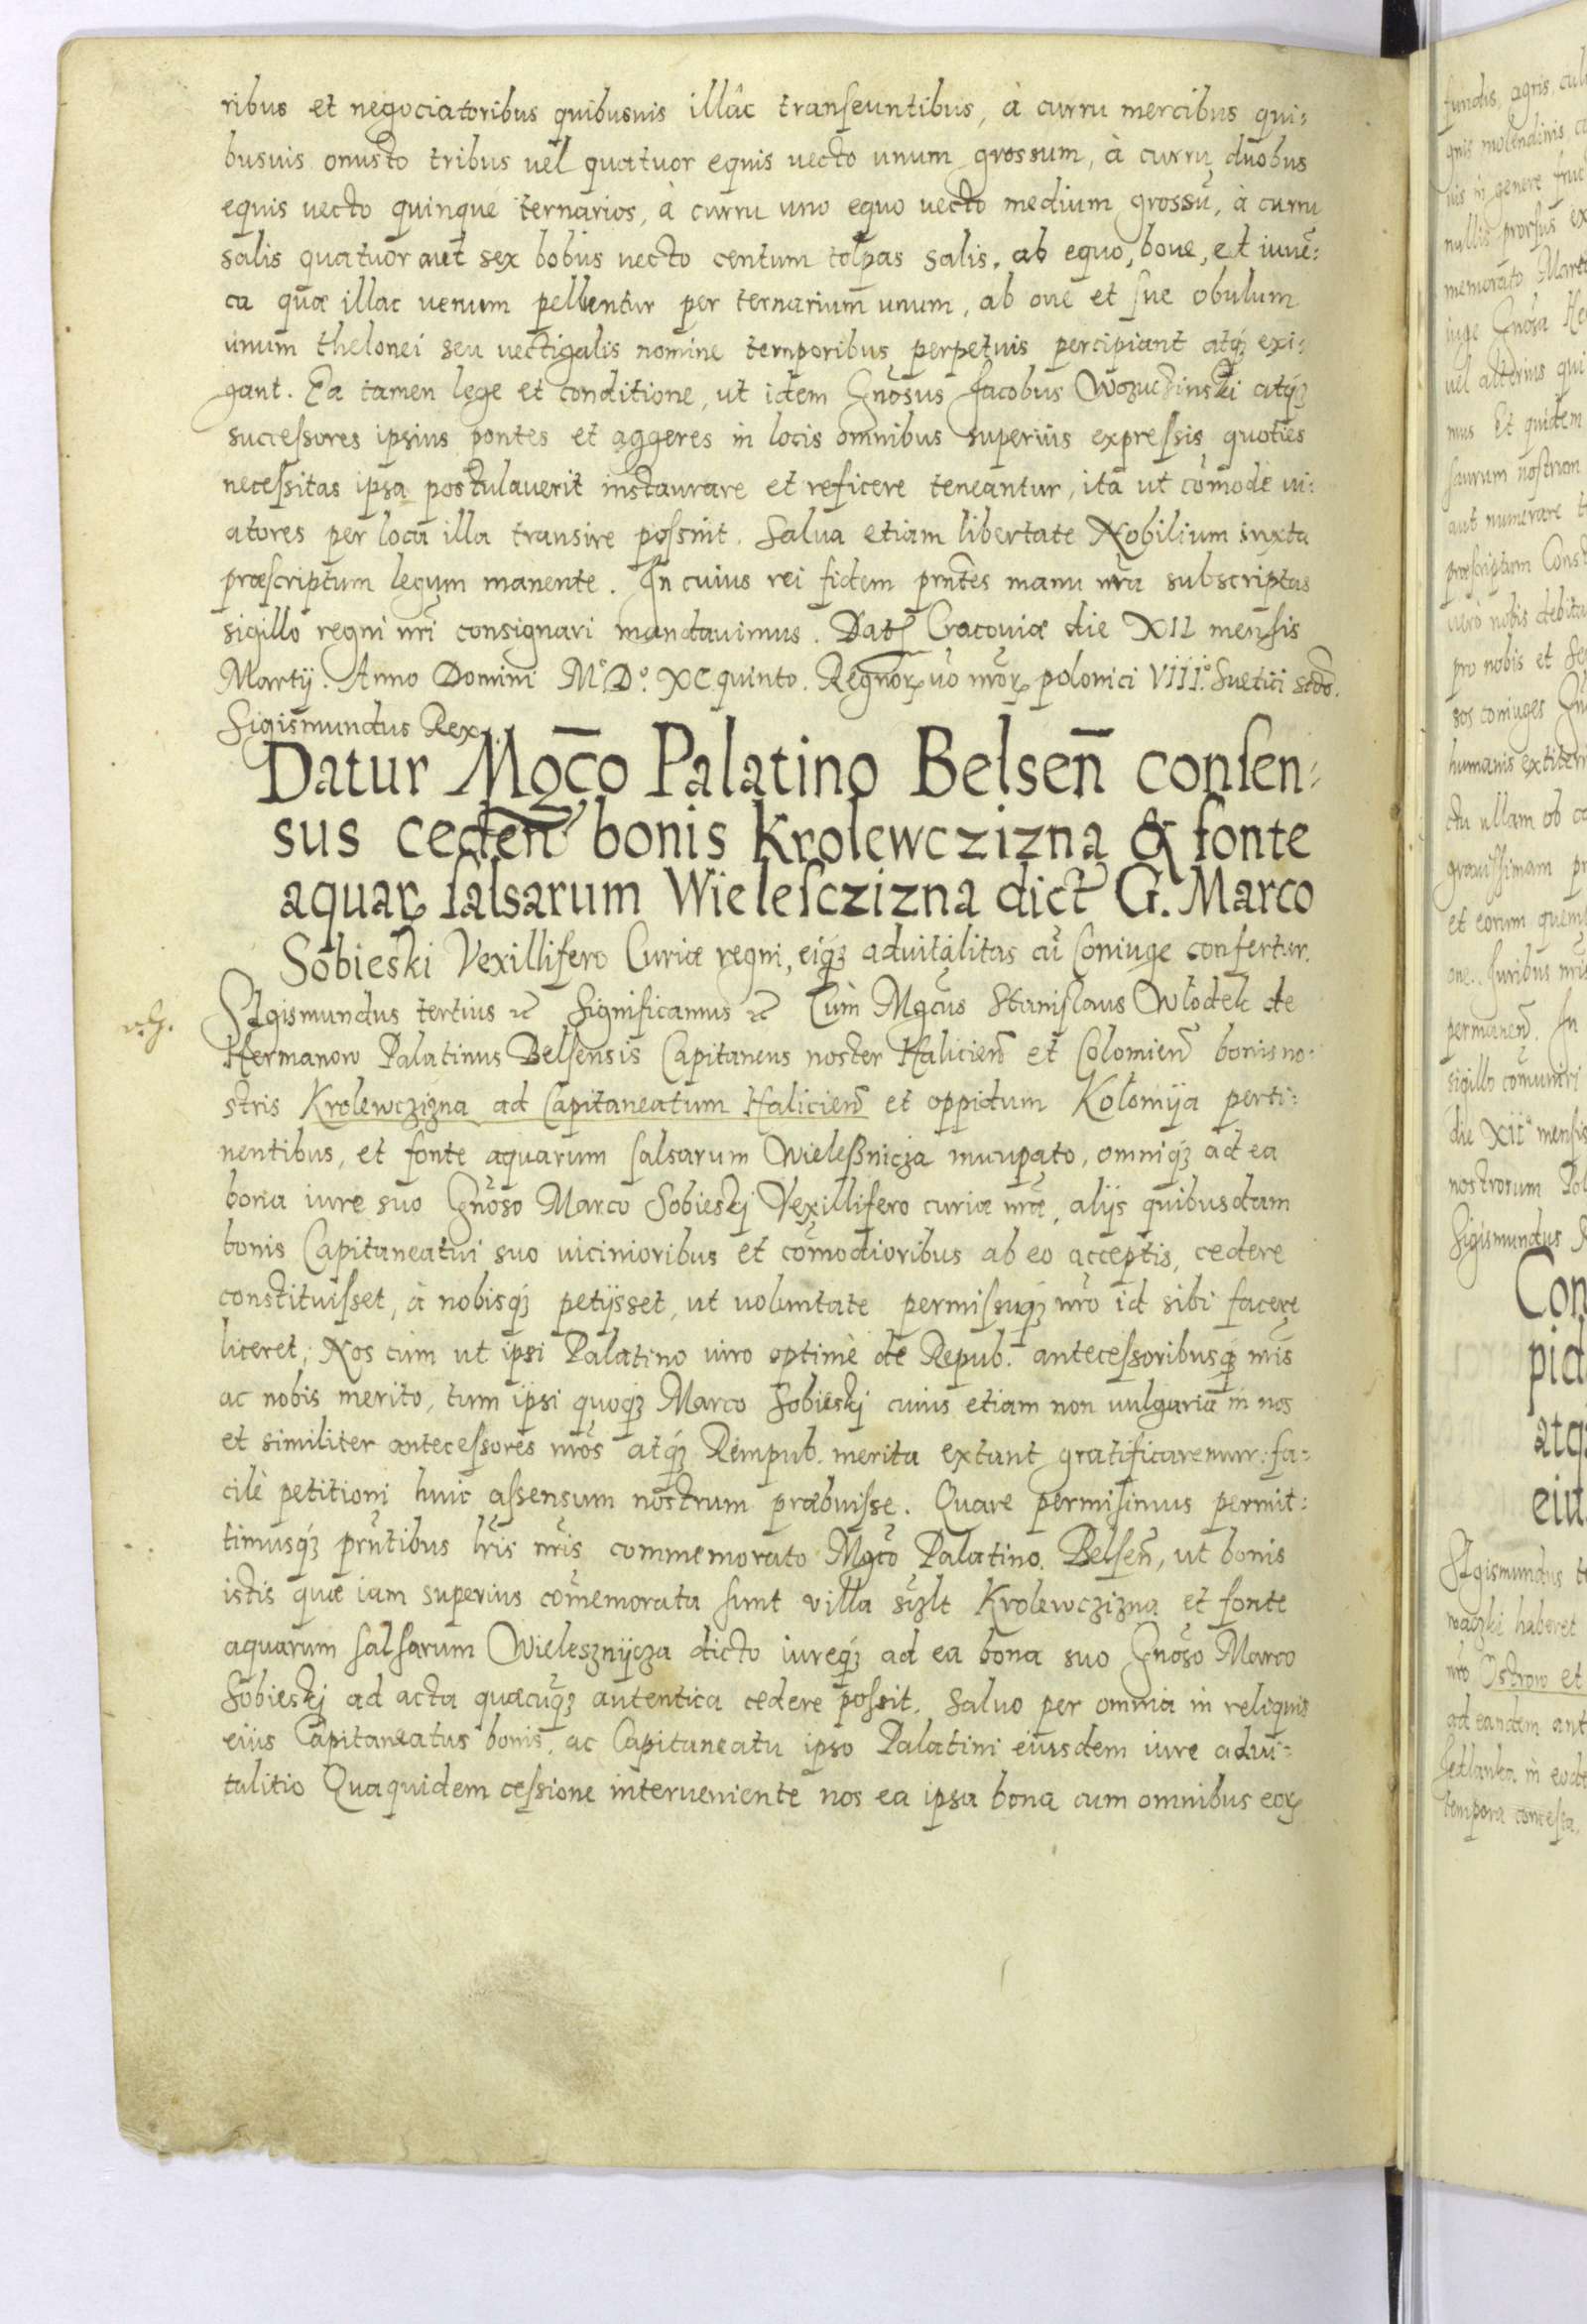 ribus et negociatoribus quibusuis illâc transeuntibus, à curru mercibus qui:
busuis onusto tribus uel quatuor equis uecto unum grossum, à curru duobus
equis uecto quinque ternarios, à curru uno equo uecto medium grossũ, à curru
salis quatuor aut sex bobus uecto centum tolpas salis, ab equo, boue, et iuuẽ:
ca quæ illac uenum pellentur per ternarium unum, ab oue et sue obulum
unum thelonei seu uectigalis nomine temporibus perpetuis percipiant atq́ꝫ exi:
gant. Ea tamen lege et conditione, ut idem Gnõsus Jacobus Wozuczinski atq́ꝫ
successores ipsius pontes et aggeres in locis omnibus superiùs expressis quoties
necessitas ipsa postulauerit instaurare et reficere teneantur, ita ut cõmode ui:
atores per loca illa transire possint. Salua etiam libertate Nobilium iuxta
præscriptum legum manente. In cuius rei fidem prñtes manu nr̃a subscriptas
sigillo regni nr̃i consignari mandauimus. Datꝭ Cracouiæ die XII mensis
Martij. Anno Domini M.º D.º XC quinto. Regnorꝝ uõ nr̃orꝝ polonici VIII.º Suetici scdõ.
Sigismundus Rex.
Datur Mgc̃o Palatino Belseñ consen:
sus cedeñ bonis Krolewczizna & fonte
aquarꝝ salsarum Wielesczizna dict̃ G. Marco
Sobieski Vexillifero Curiæ regni, eiq́ꝫ aduitalitas cũ Coniuge confertur.
v. G.
SIgismundus tertius ꝛc̃ Significamus ꝛc̃ Cùm Mgc̃us Stanislaus Włodek de
Hermanow Palatinus Belsensis Capitaneus noster Halicieñ et Colomieñ bonis no:
stris Krolewczizna ad Capitaneatum Halicieñ et oppidum Kolomija perti:
nentibus, et fonte aquarum salsarum Wielesznicza nucupato, omniq́ꝫ ad ea
bona iure suo Gnõso Marco Sobieskj Vexillifero curiæ nr̃æ, alijs quibusdam
bonis Capitaneatui suo uicinioribus et cõmodioribus ab eo acceptis, cedere
constituisset, à nobisq́ꝫ petijsset, ut uoluntate permissuq́ꝫ nr̃o id sibi facere
liceret; Nos cùm ut ipsi Palatino uiro optimè de Repub. antecessoribusq́ꝫ nr̃is
ac nobis merito, tum ipsi quoq́ꝫ Marco Sobieskj cuius etiam non uulgaria in nos
et similiter antecessores nr̃os atq́ꝫ Rempub. merita extant gratificaremur: fa:
cilè petitioni huic assensum nostrum præbuisse. Quare permisimus permit:
timusq́ꝫ prñtibus lr̃is nr̃is commemorato Mgc̃o Palatino Belseñ, ut bonis
istis quæ iam superius cõmemorata sunt villa sczlt Krolewczizna et fonte
aquarum salsarum Wielesznijcza dicto iureq́ꝫ ad ea bona suo Gnõso Marco
Sobieskj ad acta quæcũq́ꝫ autentica cedere possit. Saluo per omnia in reliquis
eius Capitaneatus bonis, ac Capitaneatu ipso Palatini eiusdem iure adui:
talitio Qua quidem cessione interueniente nos ea ipsa bona cum omnibus eorꝝ